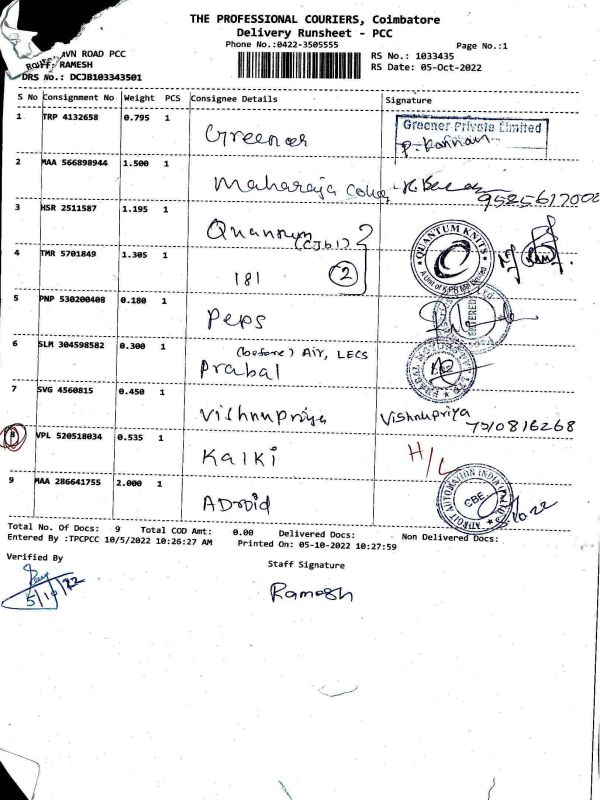 THE PROFESSIONAL COURIERS, Coimbatore
Delivery Runsheet - PCC
Phone No.:0422-3505555
Page No.:1
RS No.: 1033435
RS Date: 05-Oct-2022
AVN ROAD PCC
RAMESH
DRS No.: DCJB103343501
S No Consignment No Weight PCS Consignee Details Signature
1 TRP 4132658 0.795 1 Greener
Greener Private Limited
P. Kannan
2 MAA 566898944 1.500 1 Maharaja
3 HSR 2511587 1.195 1 Quantum
(CJb1)
QUANTUM KNITS
4 TMR 5701849 1.305 1 181 2
5 PNP 530200408 0.180 1 Peps
ENTERED
6 SLM 304598582 0.300 1 (before) Air, LECS
Prabal
7 SVG 4560815 0.450 1 Vishnupriya Vishnupriya
7210816268
8 VPL 520518034 0.535 1 Kalki H/L
9 MAA 286641755 2.000 1 ADroid
ADROIT AUTOMATION INDIA
CBE
Total No. Of Docs: 9 Total COD Amt: 0.00 Delivered Docs: Non Delivered Docs:
Entered By :TPCPCC 10/5/2022 10:26:27 AM Printed On: 05-10-2022 10:27:59
Verified By
Staff Signature
5/10/22
Ramesh